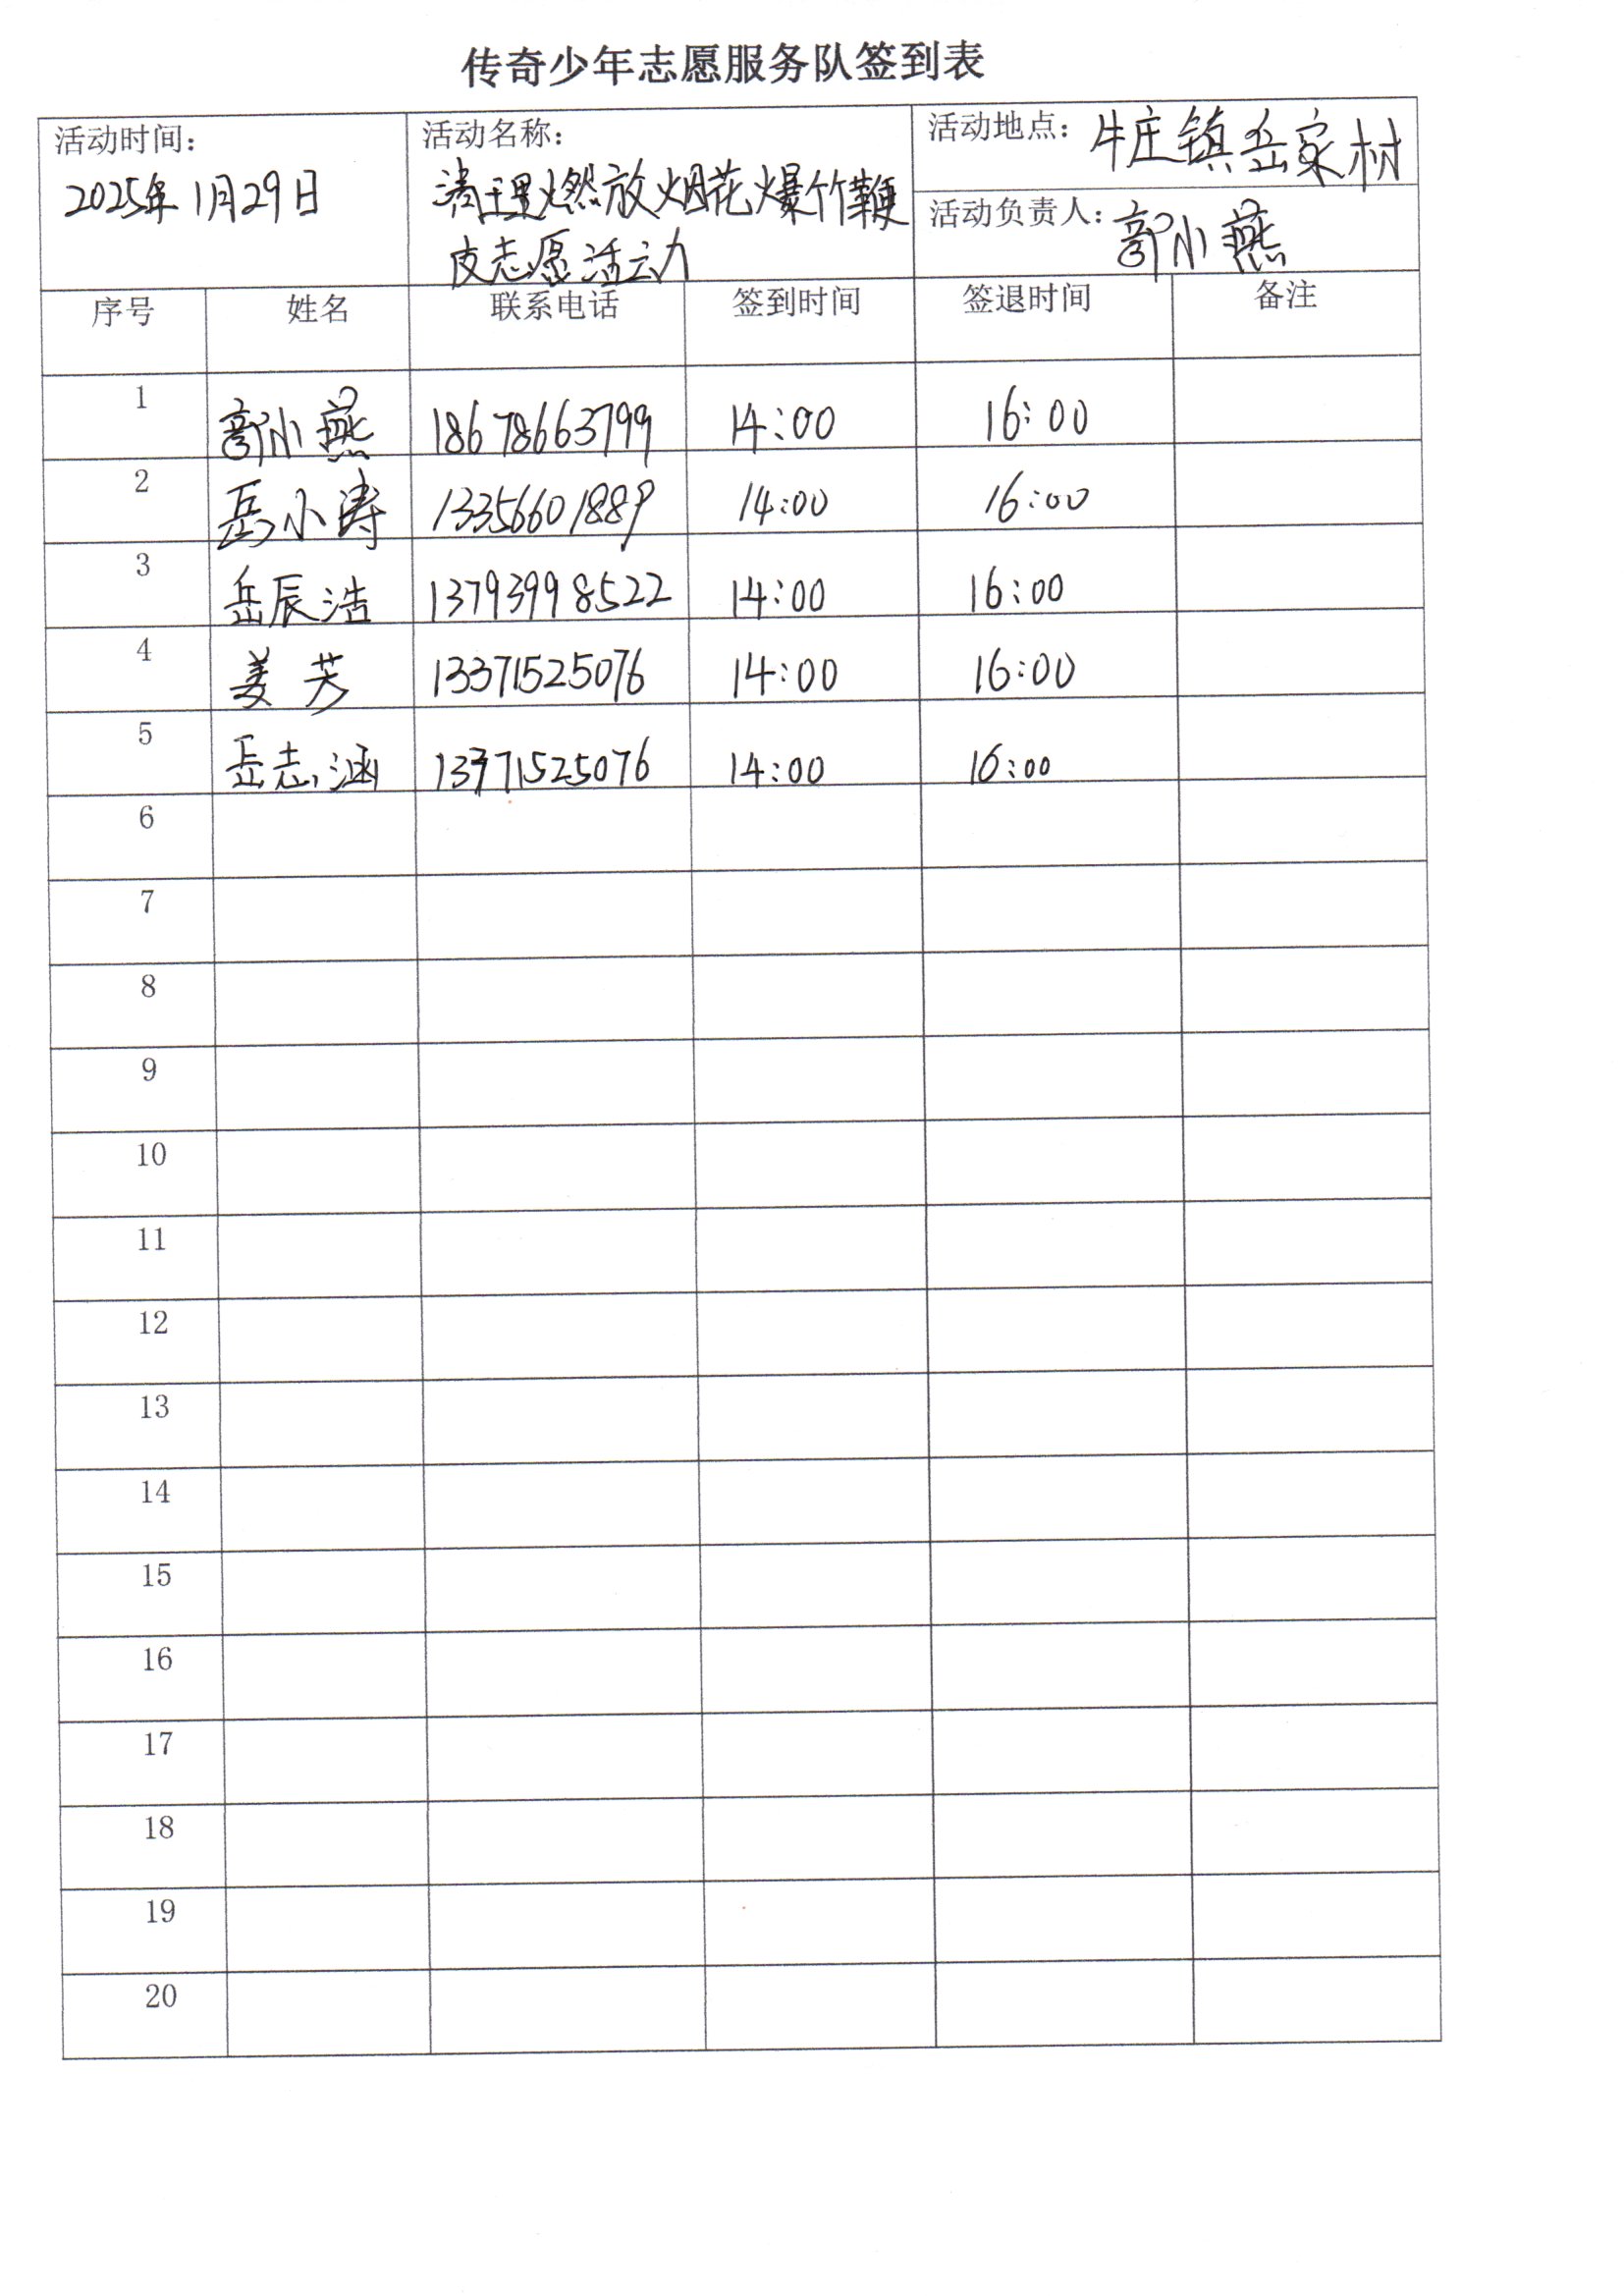 传奇少年志愿服务队签到表
活动时间: 活动名称: 活动地点: 牛庄镇岳家村
2025年1月29日 清理燃放烟花爆竹鞭
皮志愿活动
活动负责人: 郭小燕
序号 姓名 联系电话 签到时间 签退时间 备注
1 郭小燕 18678663799 14:00 16:00
2 岳小涛 13356601889 14:00 16:00
3 岳辰浩 13793998522 14:00 16:00
4 姜芳 13371525076 14:00 16:00
5 岳志涵 13371525076 14:00 16:00
6
7
8
9
10
11
12
13
14
15
16
17
18
19
20